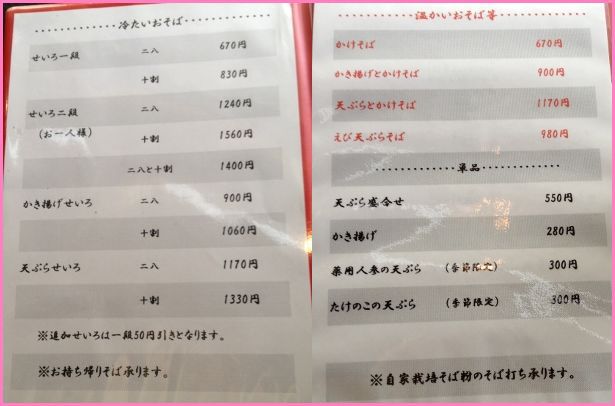 冷たいおそば
せいろ一段 二八 670円
十割 830円
せいろ二段 二八 1240円
(お一人様) 十割 1560円
二八と十割 1400円
かき揚げせいろ 二八 900円
十割 1060円
天ぷらせいろ 二八 1170円
十割 1330円
※追加せいろは一段50円引きとなります。
※お持ち帰りそば承ります。
温かいおそば等
かけそば 670円
かき揚げとかけそば 900円
天ぷらとかけそば 1170円
えび天ぷらそば 980円
単品
天ぷら盛合せ 550円
かき揚げ 280円
薬用人参の天ぷら (季節限定) 300円
たけのこの天ぷら (季節限定) 300円
※自家栽培そば粉のそば打ち承ります。